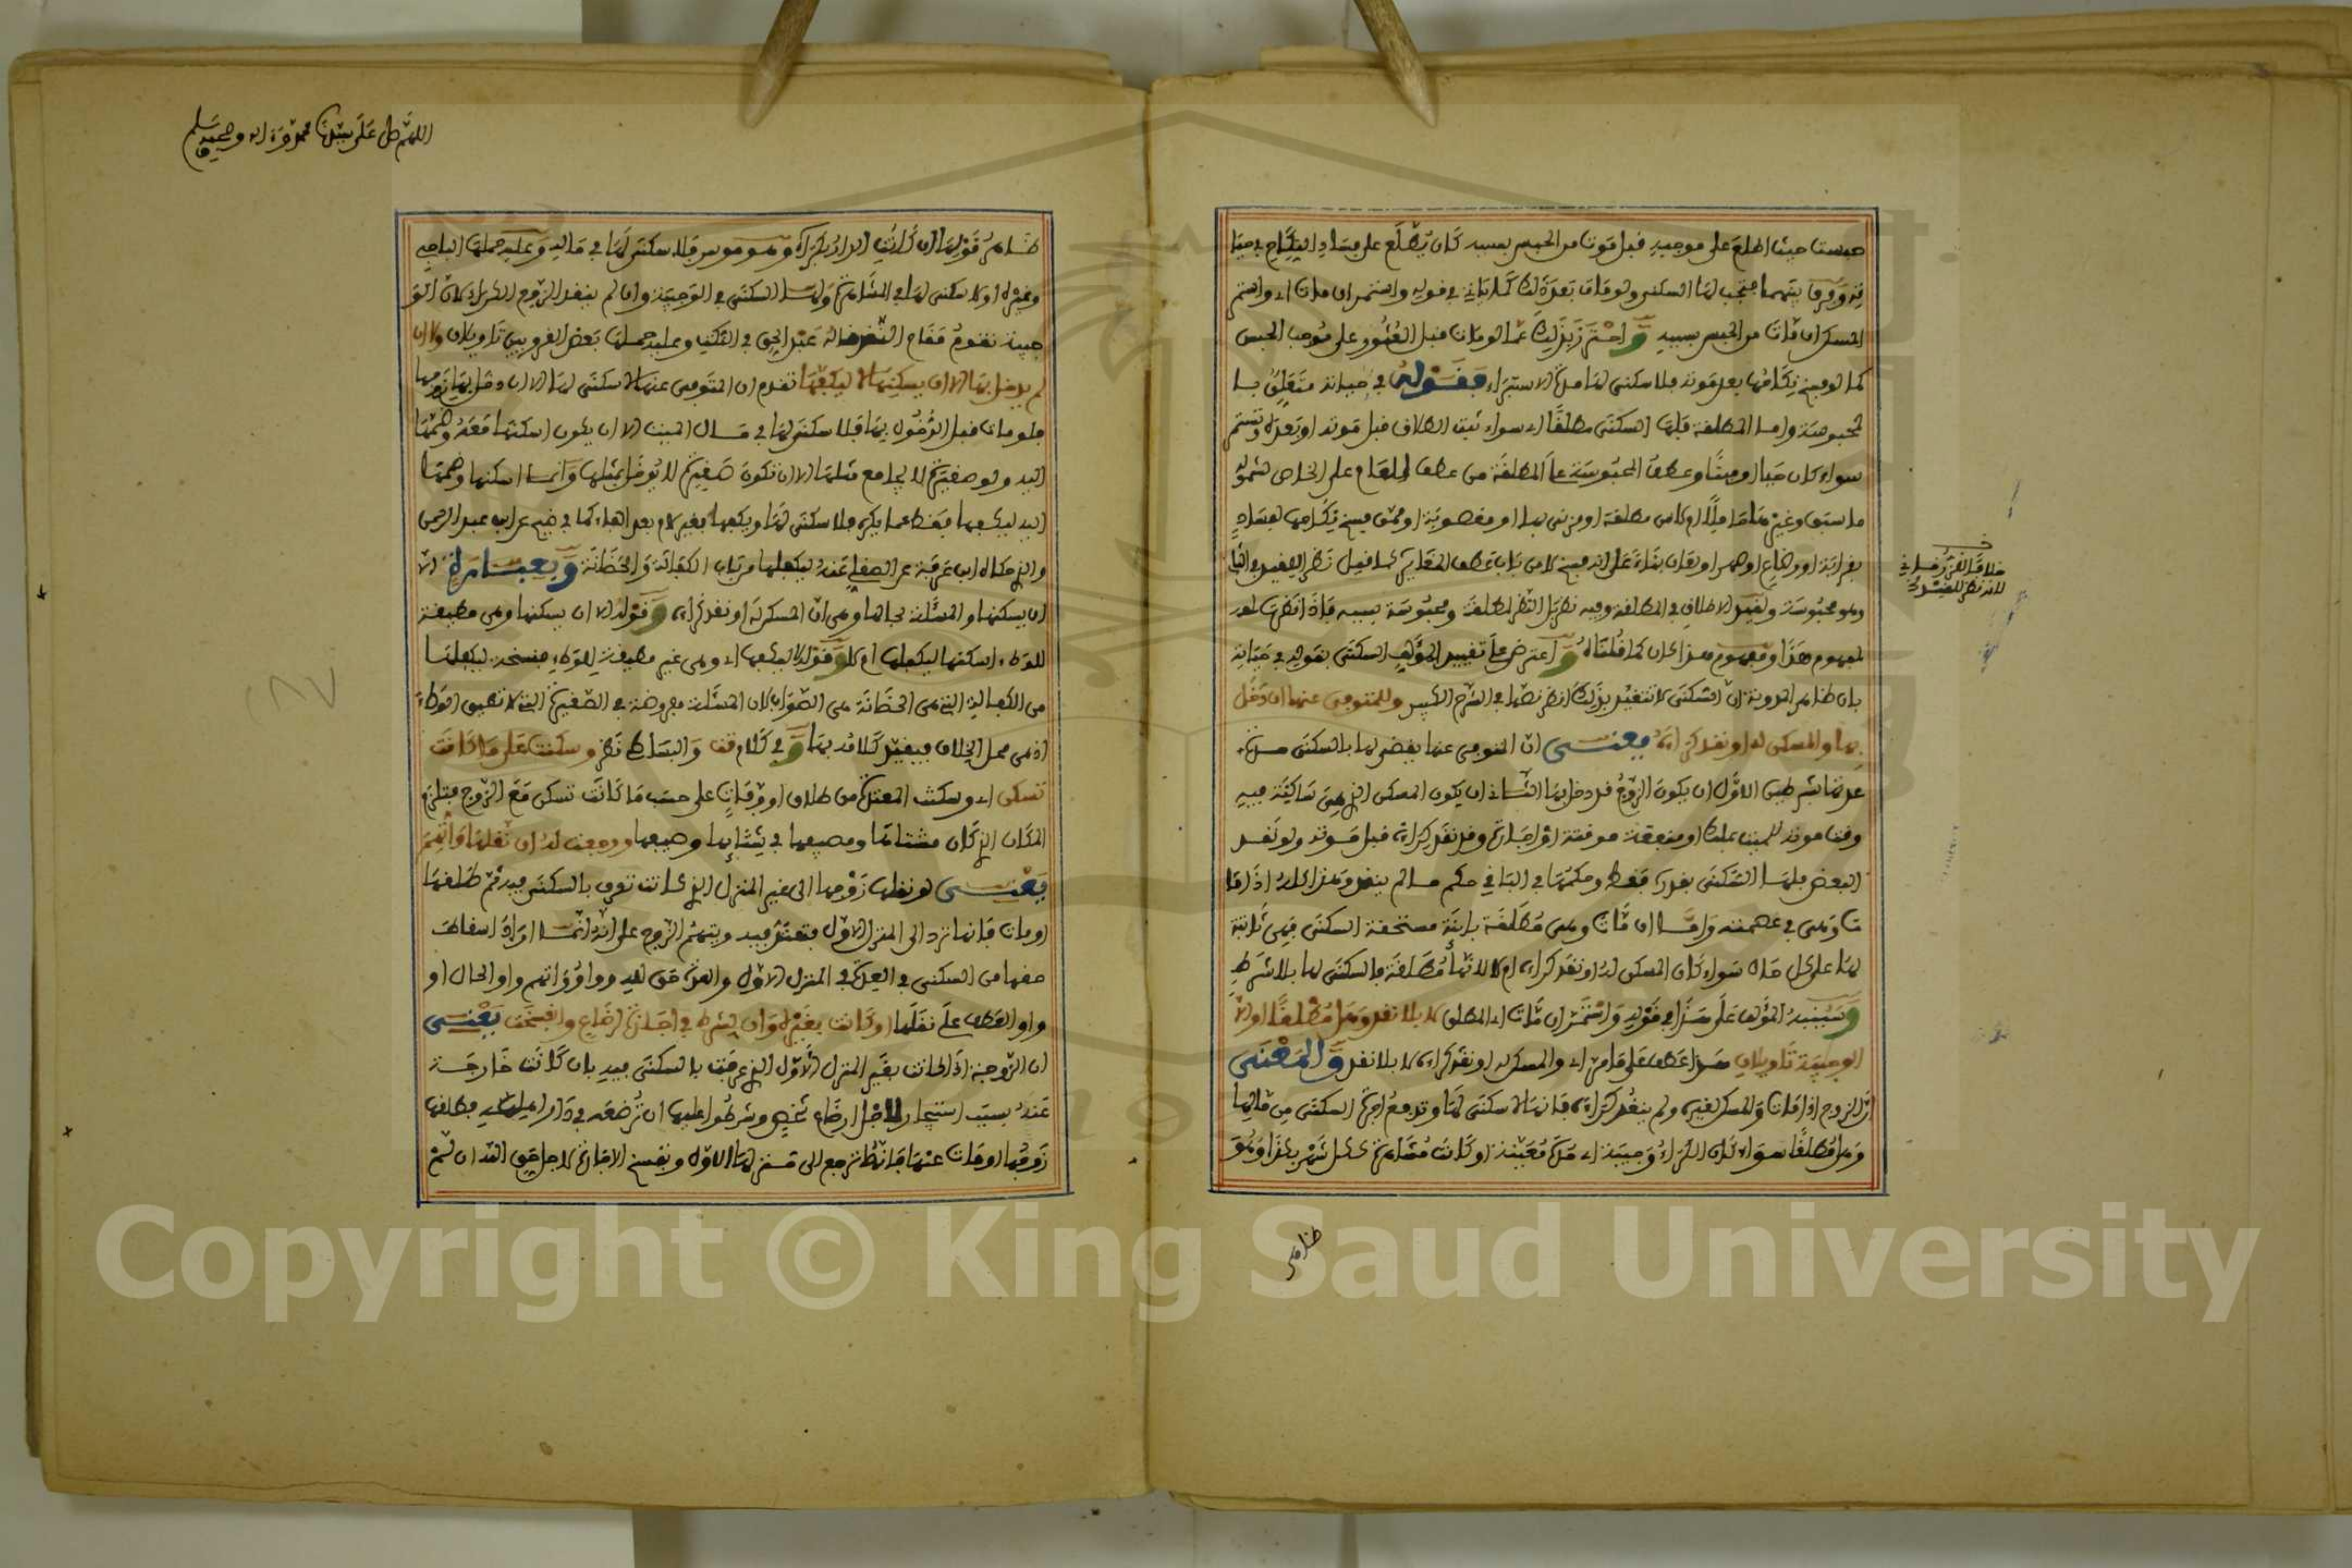 حبست حينئذ اطلع على موجبه قبل موت من الحبس بسببه كان يطلع على فساد النكاح في حيا
ته وفرق بينهما فتجب لها السكنى ولو مات بعد ذلك كما يأتي في قوله واستمر ان مات اي واستمر
المسكن ان مات من الحبس بسببه واحترز بذلك عما لو مات قبل العثور على موجب الحبس
كما لو فسخ نكاحها بعد موته فلا سكنى لها مدة الاستبراء فقوله في حياته متعلق با
لمحبوسة واما المطلقة فلها السكنى مطلقا اي سواء ثبت الطلاق قبل موته او بعده وتستمر
سواء كان حيا او ميتا وعطف المحبوسة على المطلقة من عطف العام على الخاص لشموله
ما سبق وغيره
بقرابة او رضاع او صهر او لعان بناء على انه فسخ
وهو محبوسة
لمفهوم هذا ومفهوم هذا كان كما قلناه واعترض على تقييد المؤلف السكنى بقوله في حياته
بان ظاهر المدونة ان السكنى لا تتقيد بذلك انظر نصها في الشرح الكبير وللمتوفى عنها ان دخل
بها والمسكن له او نقد كراءه يعني ان المتوفى عنها يقضى لها بالسكنى مدة
عدتها بشرطين الاول ان يكون الزوج قد دخل بها الثاني ان يكون المسكن الذي هي ساكنة فيه
وقت موته للميت بملك او منفعة موقتة او اجارة وقد نقد كراءه قبل موته ولو نقد
البعض فلها السكنى بقدره فقط وحكمها في الباقي حكم ما لم ينقد وهذا كله اذا ما
ت وهي في عصمته واما ان مات وهي مطلقة بائنة مستحقة السكنى فهي ثابتة
لها على كل حال سواء كان المسكن له او نقد كراءه ام لا لانها مطلقة فالسكنى لها بلا شرط
وسينبه المؤلف على هذا في قوله واستمر ان مات اي المطلق لا بلا نقد وهل مطلقا او الا
الوجيبة تأويلان هذا عطف على ما مر اي والمسكن له او نقد كراءه لا بلا نقد والمعنى
ان الزوج اذا مات والمسكن لغيره ولم ينقد كراءه فانها لا سكنى لها وتدفع اجرة السكنى من مالها
وهل مطلقا سواء كان الكراء وجيبة اي مدة معينة او كانت مشاهرة كل شهر بكذا وهو
ظاهر
اللهم صل على سيدنا محمد وءاله وصحبه وسلم
ظاهر قولها ان كانت الدار بكراء وهو موسر فلا سكنى لها في ماله وعليه حملها الباجي
وغيره او لا سكنى لها في المشاهرة ولها السكنى في الوجيبة وان لم ينقد الزوج الكراء لان الو
جيبة تقوم مقام النقد عند عبد الحق في النكت وعليه حملها بعض القرويين تأويلان ولا ان
لم يدخل بها الا ان يسكنها لا ليكفها تقدم ان المتوفى عنها لا سكنى لها الا ان دخل بها زوجها
فلو مات قبل الدخول بها فلا سكنى لها في مال الميت الا ان يكون اسكنها معه وضمها
اليه ولو صغيرة لا يجامع مثلها الا ان تكون صغيرة لا يوطأ مثلها وانما اسكنها وضمها
اليه ليكفها فقط عما يكره فلا سكنى لها
والذي حكاه ابن عرفة عن الصقلي عنه ليكفلها من باب الكفالة والحضانة وبعبارة الا
ان يسكنها والمسئلة بحالها وهي ان المسكن له او نقد كراءه وقوله الا ان يسكنها وهي مطيقة
للوطء اسكنها ليكفلها ام لا وقوله لا ليكفها اي وهي غير مطيقة للوطء فنسخة ليكفلها
من الكفالة التي هي الحضانة هي الصواب لان المسئلة مفروضة في الصغيرة التي لا تطيق الوطء
اذ هي محل الخلاف فيقيد كلامه بها وفي كلام تت والبساطي نظر وسكنت على ما كانت
تسكن اي وسكنت المعتدة من طلاق او وفات على حسب ما كانت تسكن مع الزوج فتلزم
المكان الذي كان مشتاها ومصيفها في شتائها وصيفها ورجعت له ان نقلها واتهم
يعني لو نقلها زوجها الى غير المنزل الذي كانت تعرف بالسكنى فيه ثم طلقها
او مات فانها ترد الى المنزل الاول فتعتد فيه ويتهم الزوج على انه انما اراد اسقاط
حقها من السكنى في العدة في المنزل الاول والعدة حق لله وواو واتهم واو الحال او
واو العطف على نقلها او كانت بغيره وان بشرط في اجارة رضاع وانفسخت يعني
ان الزوجة اذا كانت بغير المنزل الاول الذي عرفت بالسكنى فيه بان كانت خارجة
عنه بسبب استئجارها لاجل ارضاع شخص وشرطوا عليها ان ترضعه في دار اهله فطلقها
زوجها او مات عنها فانها ترجع الى منزلها الاول وتفسخ الاجارة لاجل حق الله ان لم
Copyright © King Saud University